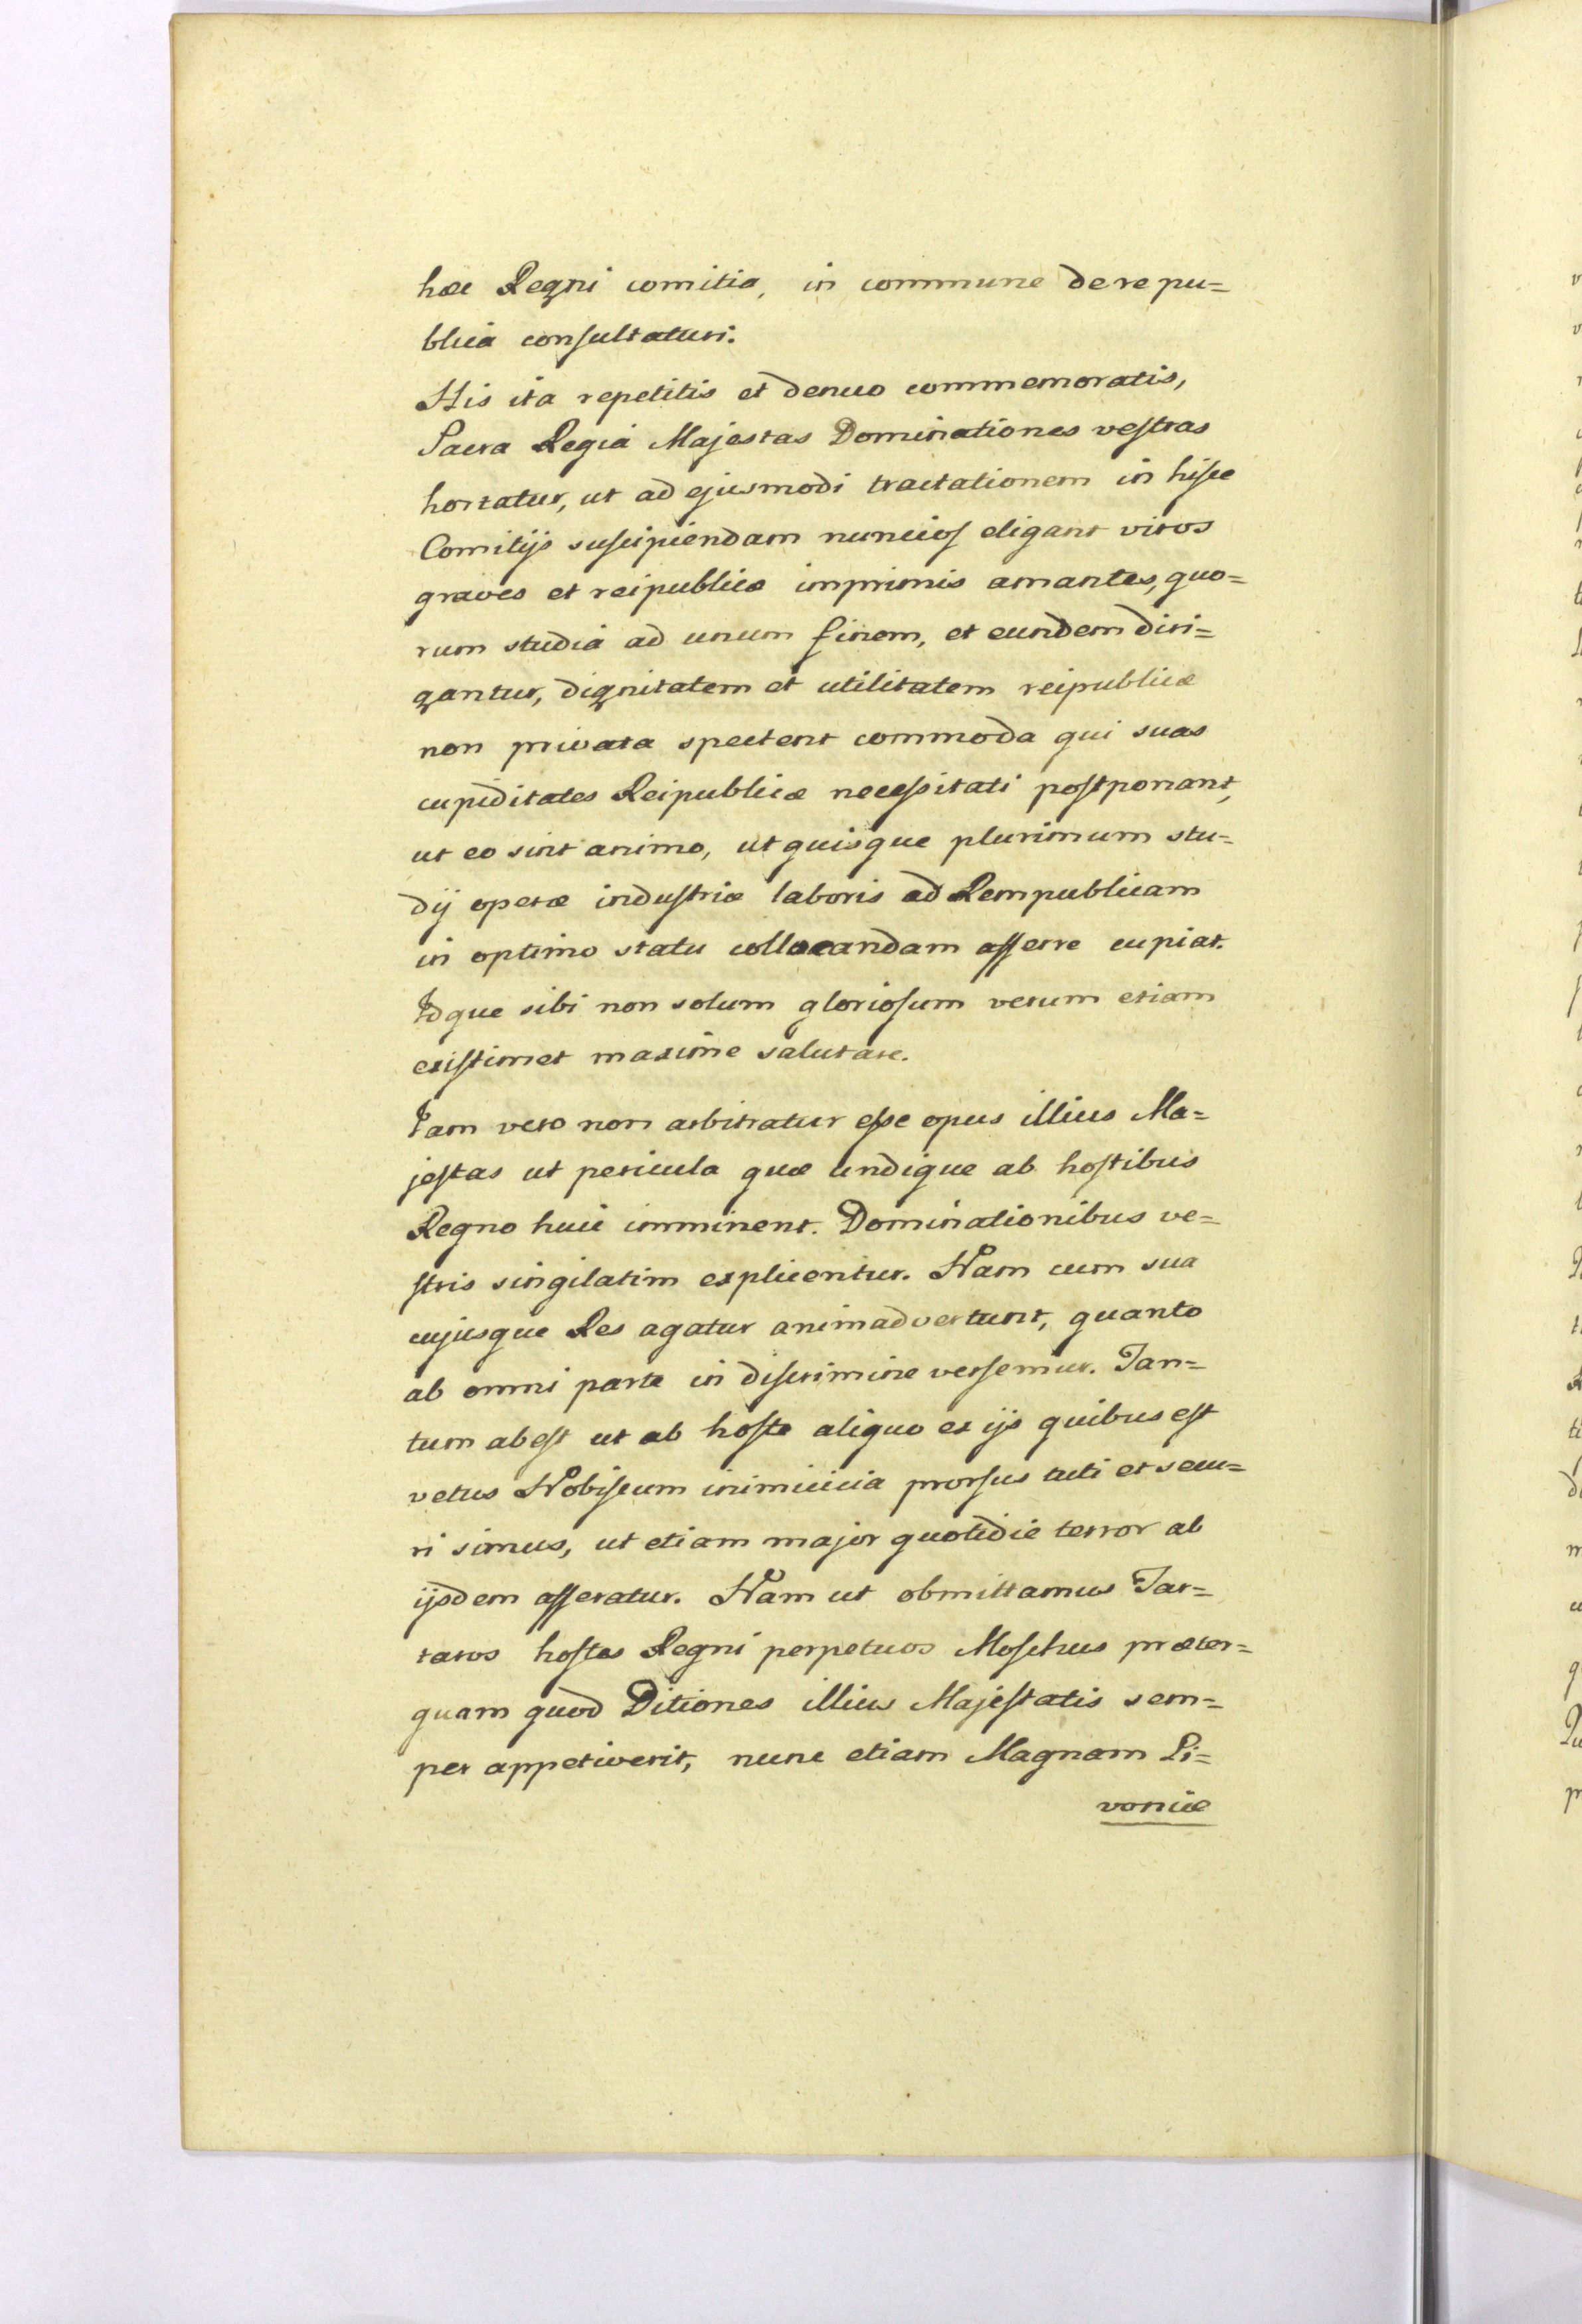 hæc Regni comitia, in commune de re pu=
blica consultaturi.
His ita repetitis et denuo commemoratis,
Sacra Regia Majestas Dominationes vestras
hortatur, ut ad ejusmodi tractationem in hisce
Comitijs suscipiendam nuncios eligant viros
graves et reipublicæ imprimis amantes, quo=
rum studia ad unum finem, et eundem diri=
gantur, dignitatem et utilitatem reipublicæ
non privata spectent commoda qui suas
cupiditates Reipublicæ necessitati postponant,
ut eo sint animo, ut quisque plurimum stu=
dij operæ industriæ laboris ad Rempublicam
in optimo statu collocandam afferre cupiat.
Idque sibi non solum gloriosum verum etiam
existimet maxime salutare.
Jam vero non arbitratur esse opus illius Ma=
jestas ut pericula quæ undique ab hostibus
Regno huic imminent. Dominationibus ve=
stris singilatim explicentur. Nam cum sua
cujusque Res agatur animadvertunt, quanto
ab omni parte in discrimine versemur. Tan=
tum abest ut ab hoste aliquo ex ijs quibus est
vetus Nobiscum inimicicia prorsus tuti et secu=
ri simus, ut etiam major quotidie terror ab
ijsdem afferatur. Nam ut obmittamus Tar=
taros hostes Regni perpetuos Moschus præter=
quam quod Ditiones illius Majestatis sem=
per appetiverit, nunc etiam Magnam Li=
voniæ